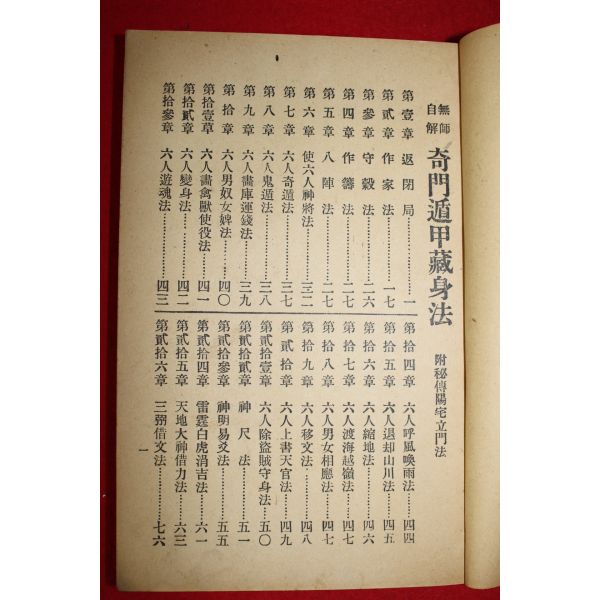 無師自解
奇門遁甲藏身法
附秘傳陽宅立門法
第壹章 返閉局…………一
第貳章 作家法…………一七
第參章 守穀法…………二六
第四章 作籌法…………二七
第五章 八陣法…………二七
第六章 使六人神將法……三二
第七章 六人奇遁法………三七
第八章 六人鬼遁法………三八
第九章 六人畵庫運錢法…三九
第拾章 六人男奴女婢法…四〇
第拾壹草 六人畵禽獸使役法…四一
第拾貳章 六人變身法……四二
第拾參章 六人遊魂法……四三
第拾四章 六人呼風喚雨法…四四
第拾五章 六人退却山川法…四五
第拾六章 六人縮地法……四六
第拾七章 六人渡海越嶺法…四七
第拾八章 六人男女相應法…四七
第拾九章 六人移文法……四八
第貳拾章 六人上書天官法…四九
第貳拾壹章 六人除盜賊守身法…五〇
第貳拾貳章 神尺法………五一
第貳拾參章 神明易爻法……五五
第貳拾四章 雷霆白虎涓吉法…六一
第貳拾五章 天地大神借力法…六三
第貳拾六章 三弼借文法……七六
一